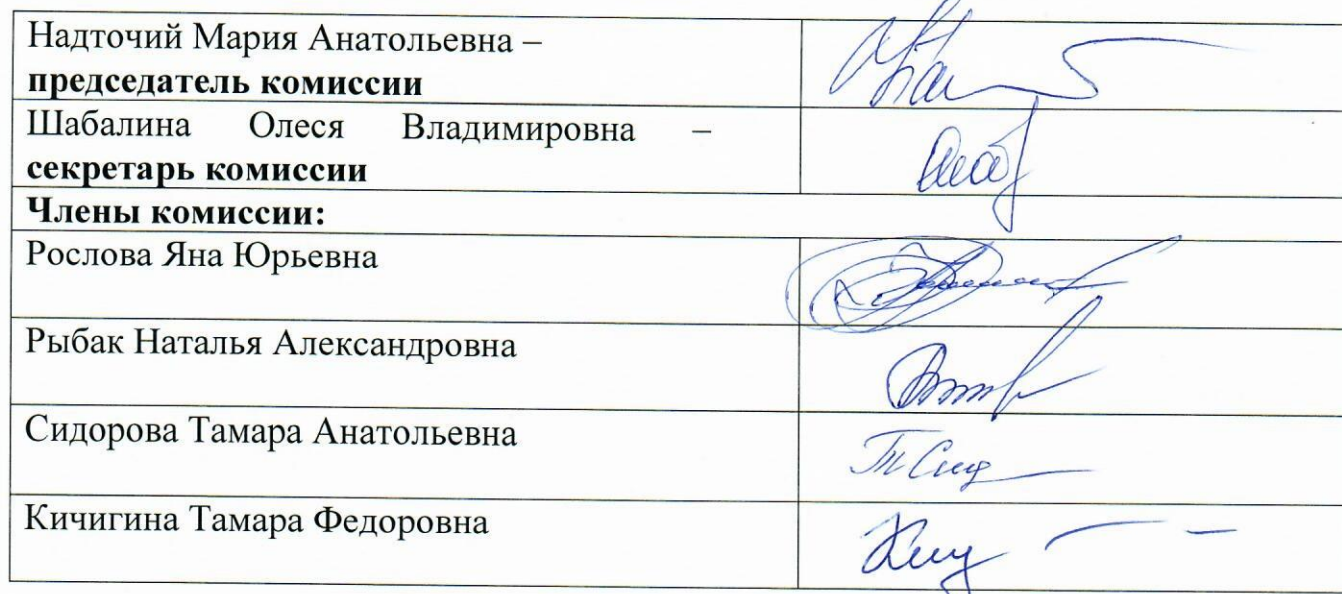 Надточий Мария Анатольевна –
председатель комиссии
Шабалина Олеся Владимировна –
секретарь комиссии
Члены комиссии:
Рослова Яна Юрьевна
Рыбак Наталья Александровна
Сидорова Тамара Анатольевна
Кичигина Тамара Федоровна